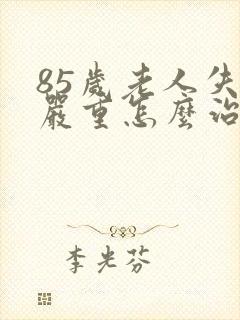 85歲老人失
嚴重怎麼治
李光芬